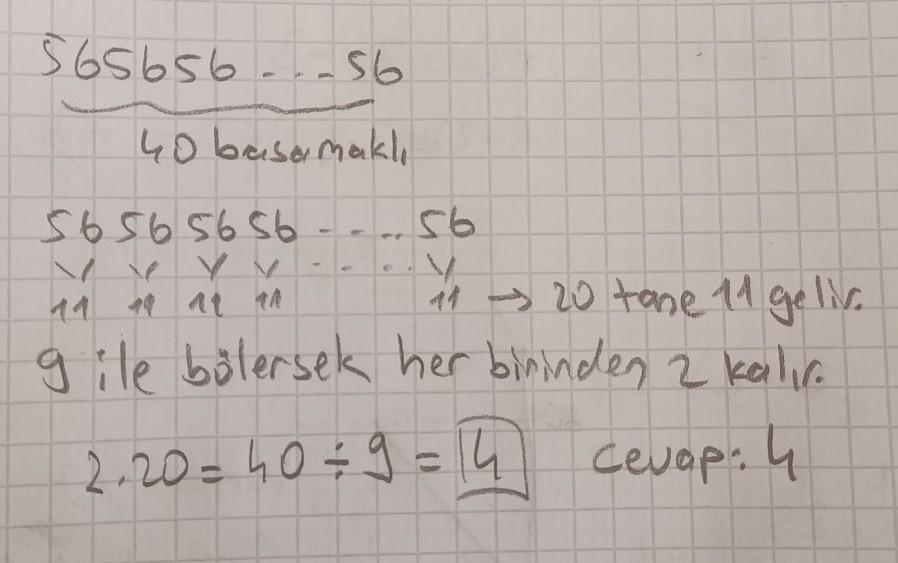 565656 ... 56
40 basamaklı
56 56 56 56 ..... 56
11 11 11 11 ..... 11 → 20 tane 11 gelir.
9 ile bölersek her birinden 2 kalır.
2.20 = 40 ÷ 9 = 4 Cevap: 4